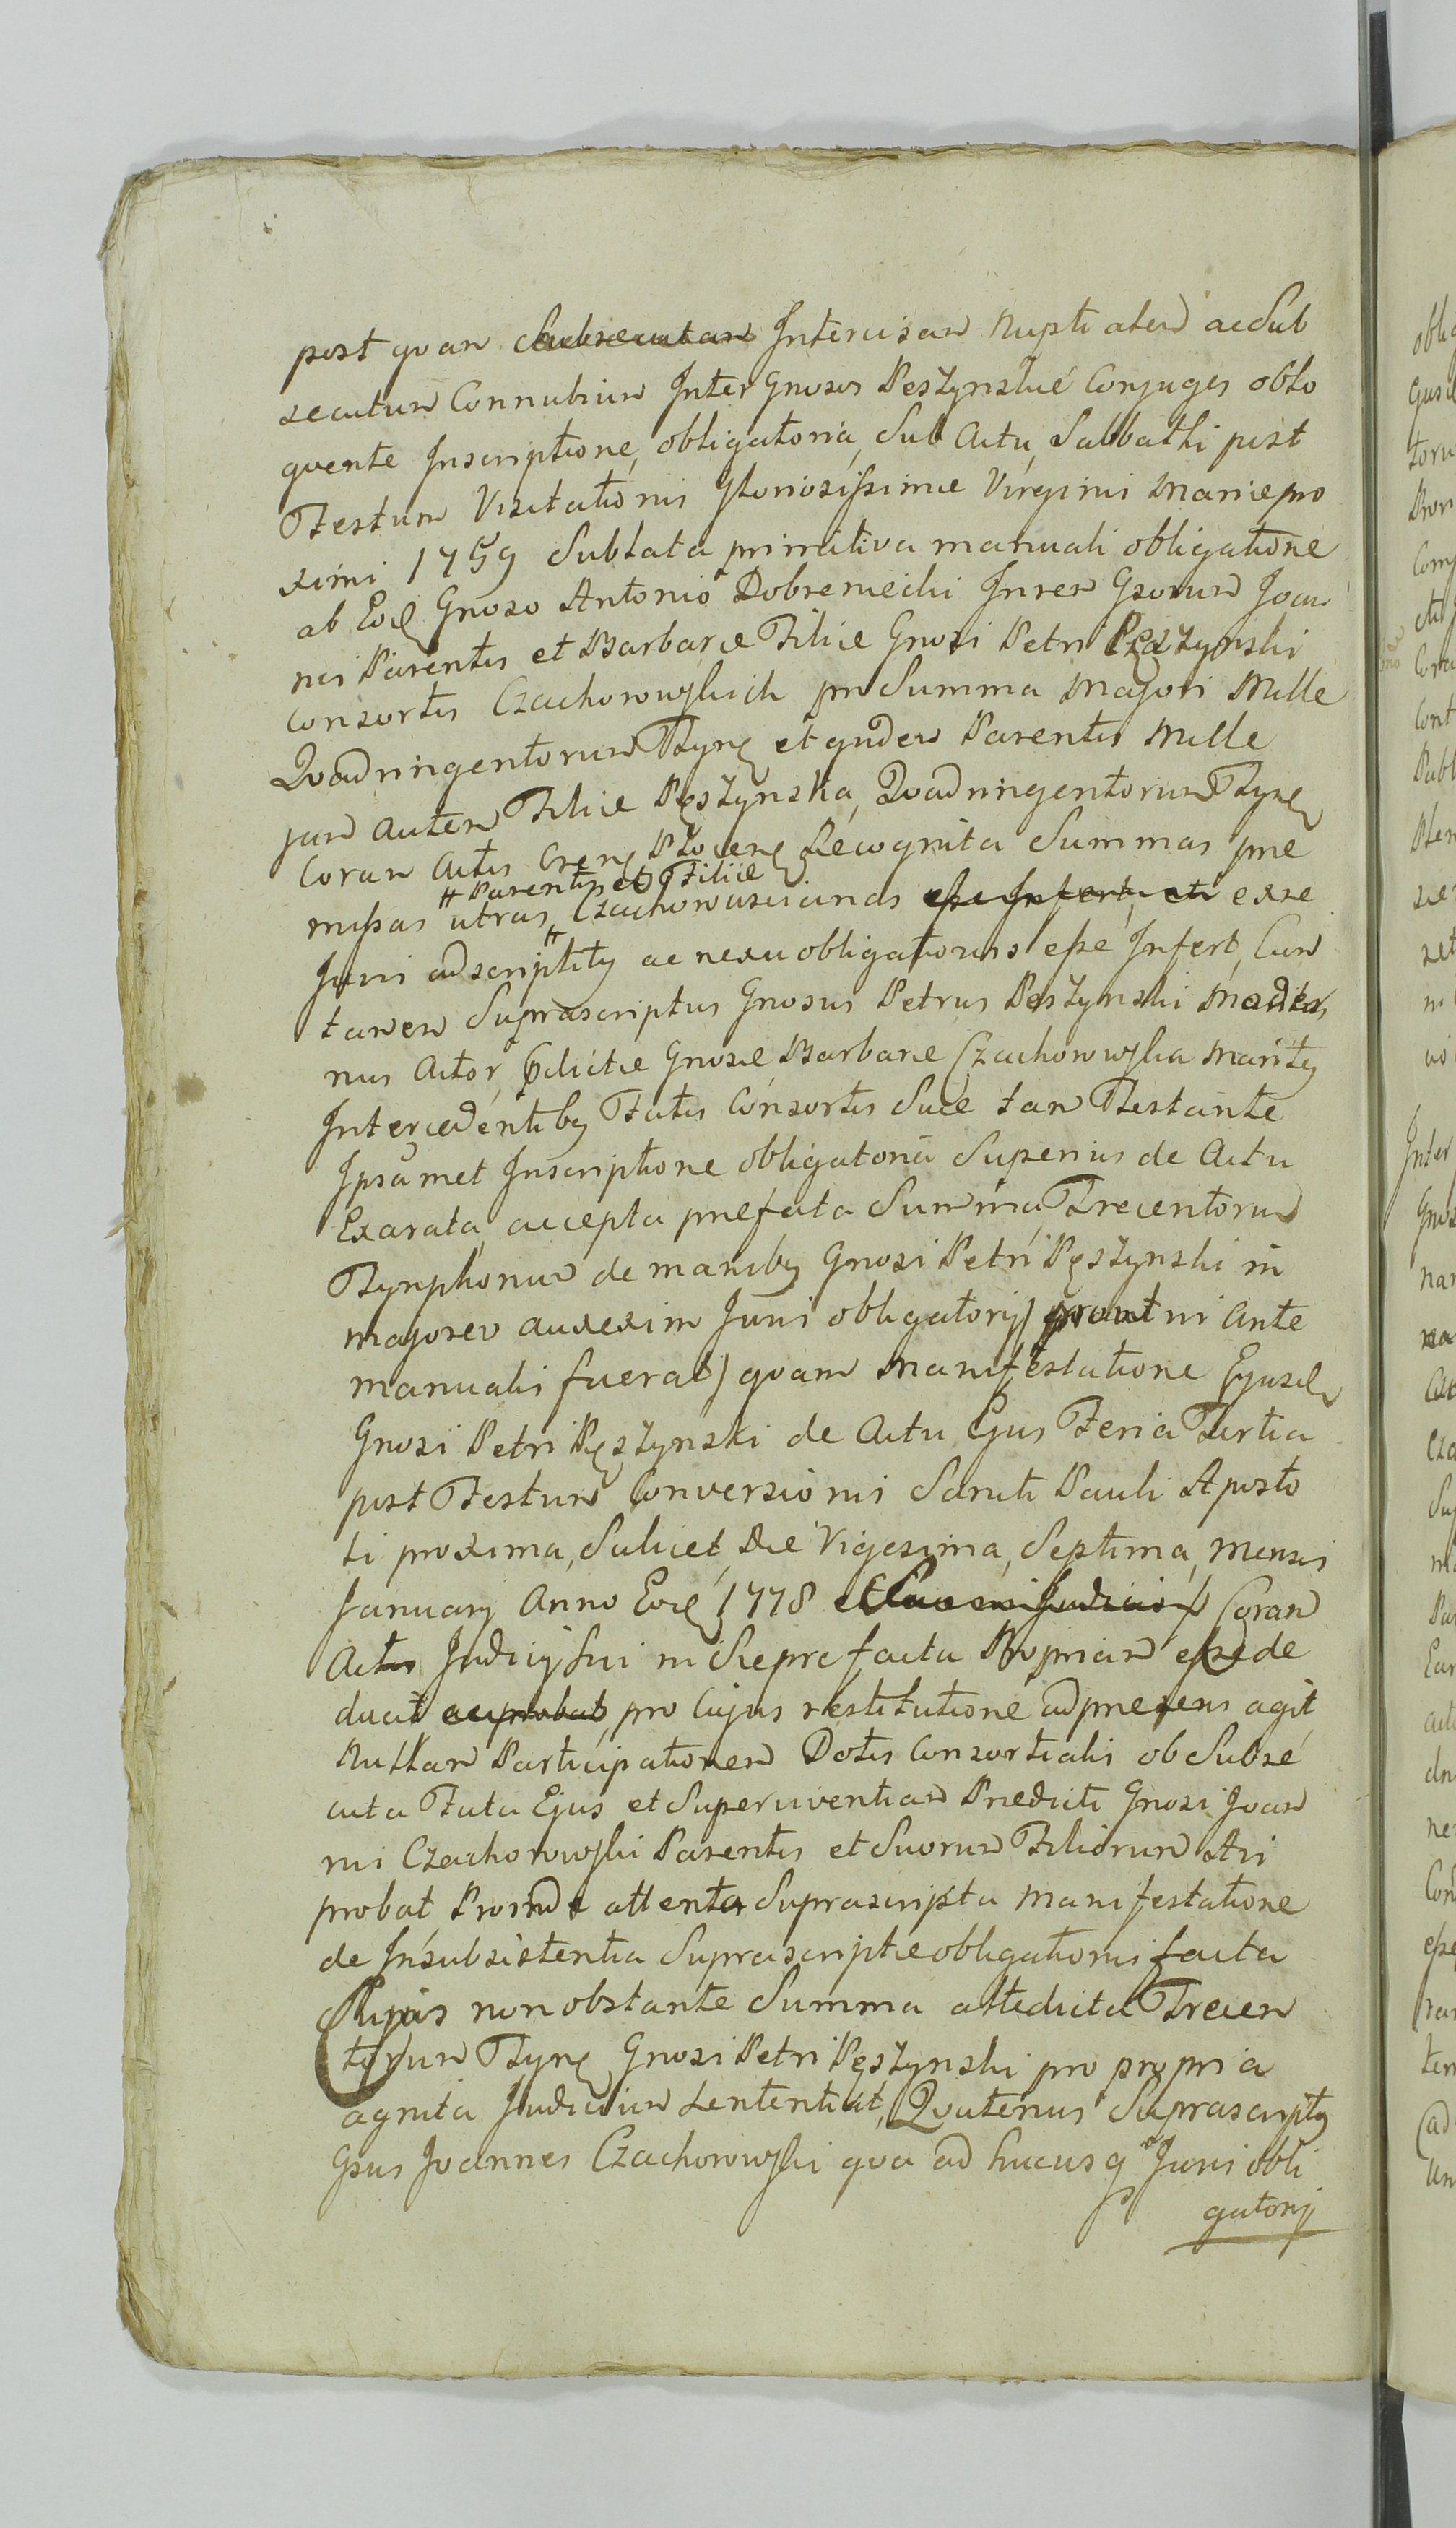 post quam Intercisam Nuptialem ac Sub
secutum Connubium Inter Gnosos Pęszynskie Conjuges oblo
quente Inscriptione, obligatoria, Sub Actu, Sabbathi post
Festum Visitationis Gloriosissimæ Virginis Mariæ pro
ximi 1759 Sublata primitiva manuali obligatione
ab Eod Gnoso Antonio Dobrzeniecki In rem Gsorum Joan
nis Parentis et Barbaræ Filiæ Gnosi Petri Pęszynski
Consortis Czachorowskich pro Summa Majori Mille
Quadringentorum Tynf et quidem Parentis Mille
jam Autem Filiæ Pęszynska, Quadringentorum Tynf
Coram Actis Cren Plocen Recognita Summas præ
# Parentis et Filiæ
missas utras Czachorowscianas esse Infert, et exse
Juri adscriptity ac nexu obligatorus esse Infert, Cum
tamen Suprascriptus Gnosus Petrus Peszynski Moder
nus Actor, Gdictæ Gnosæ Barbaræ Czachorowska Marity
Intercedentiby Fatis Consortis Suæ tam Testante
Ipsamet Inscriptione obligatoria Superius de Actu
Exarata, accepta præfata Summa, Trecentorum
Tynphonum de maniby Gnosi Petri Pęszynski in
majorem auxexim Juris obligatorij) prout in Ante
manualis fuerat) quam Manifestatione Ejusd
Gnosi Petri Pęszynski de Actu Ejus Feria Tertia
post Festum Conversionis Sancti Pauli Aposto
li proxima, Scilicet, Die Vigesima, Septima, Mensis
January Anno Eod 1778 Coram
Actis Judicij Sui in Siepre facta Propriam esse de
ducit ac probat, pro Cujus restitutione ad præsens agit
Nullam Participationem Dotis Consortialis ob Subse
cuta Fata Ejus et Superviventiam Prædicti Gnosi Joan
nis Czachorowski Parentis et Suorum Filiorum Sti
probat Proinde attenta Suprascripta Manifestatione
de Insubsistentia Suprascriptæ obligationis facta
Cujus non obstante Summa attedicta Trecen
torum Tynf Gnosi Petri Pęszynski pro propria
agnita Judicium Sententiat, Quatenus Suprascripty
Gsus Joannes Czachorowski qua ad hucusq Juris obli
gatorij